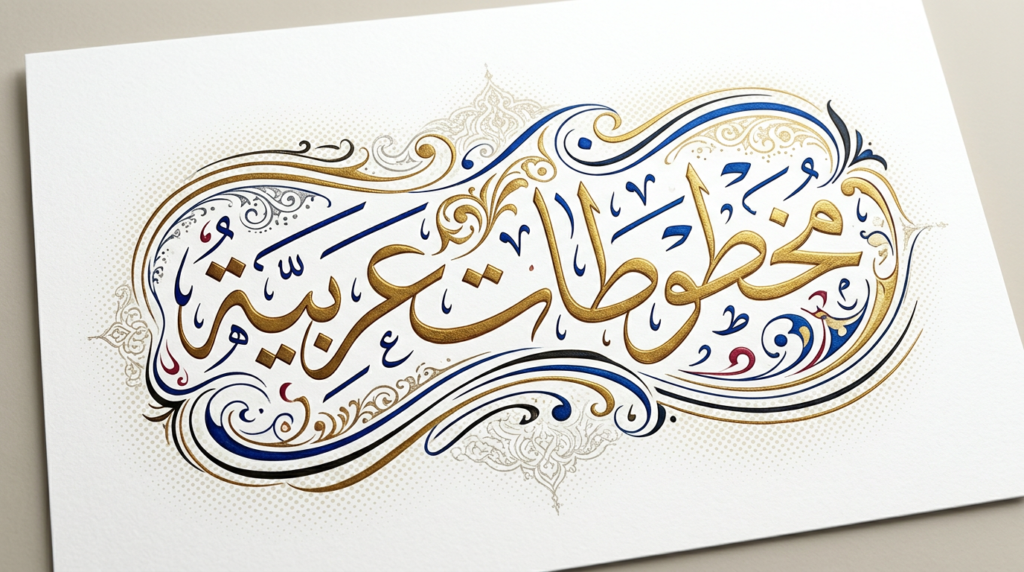 مخطوطات عربيّة